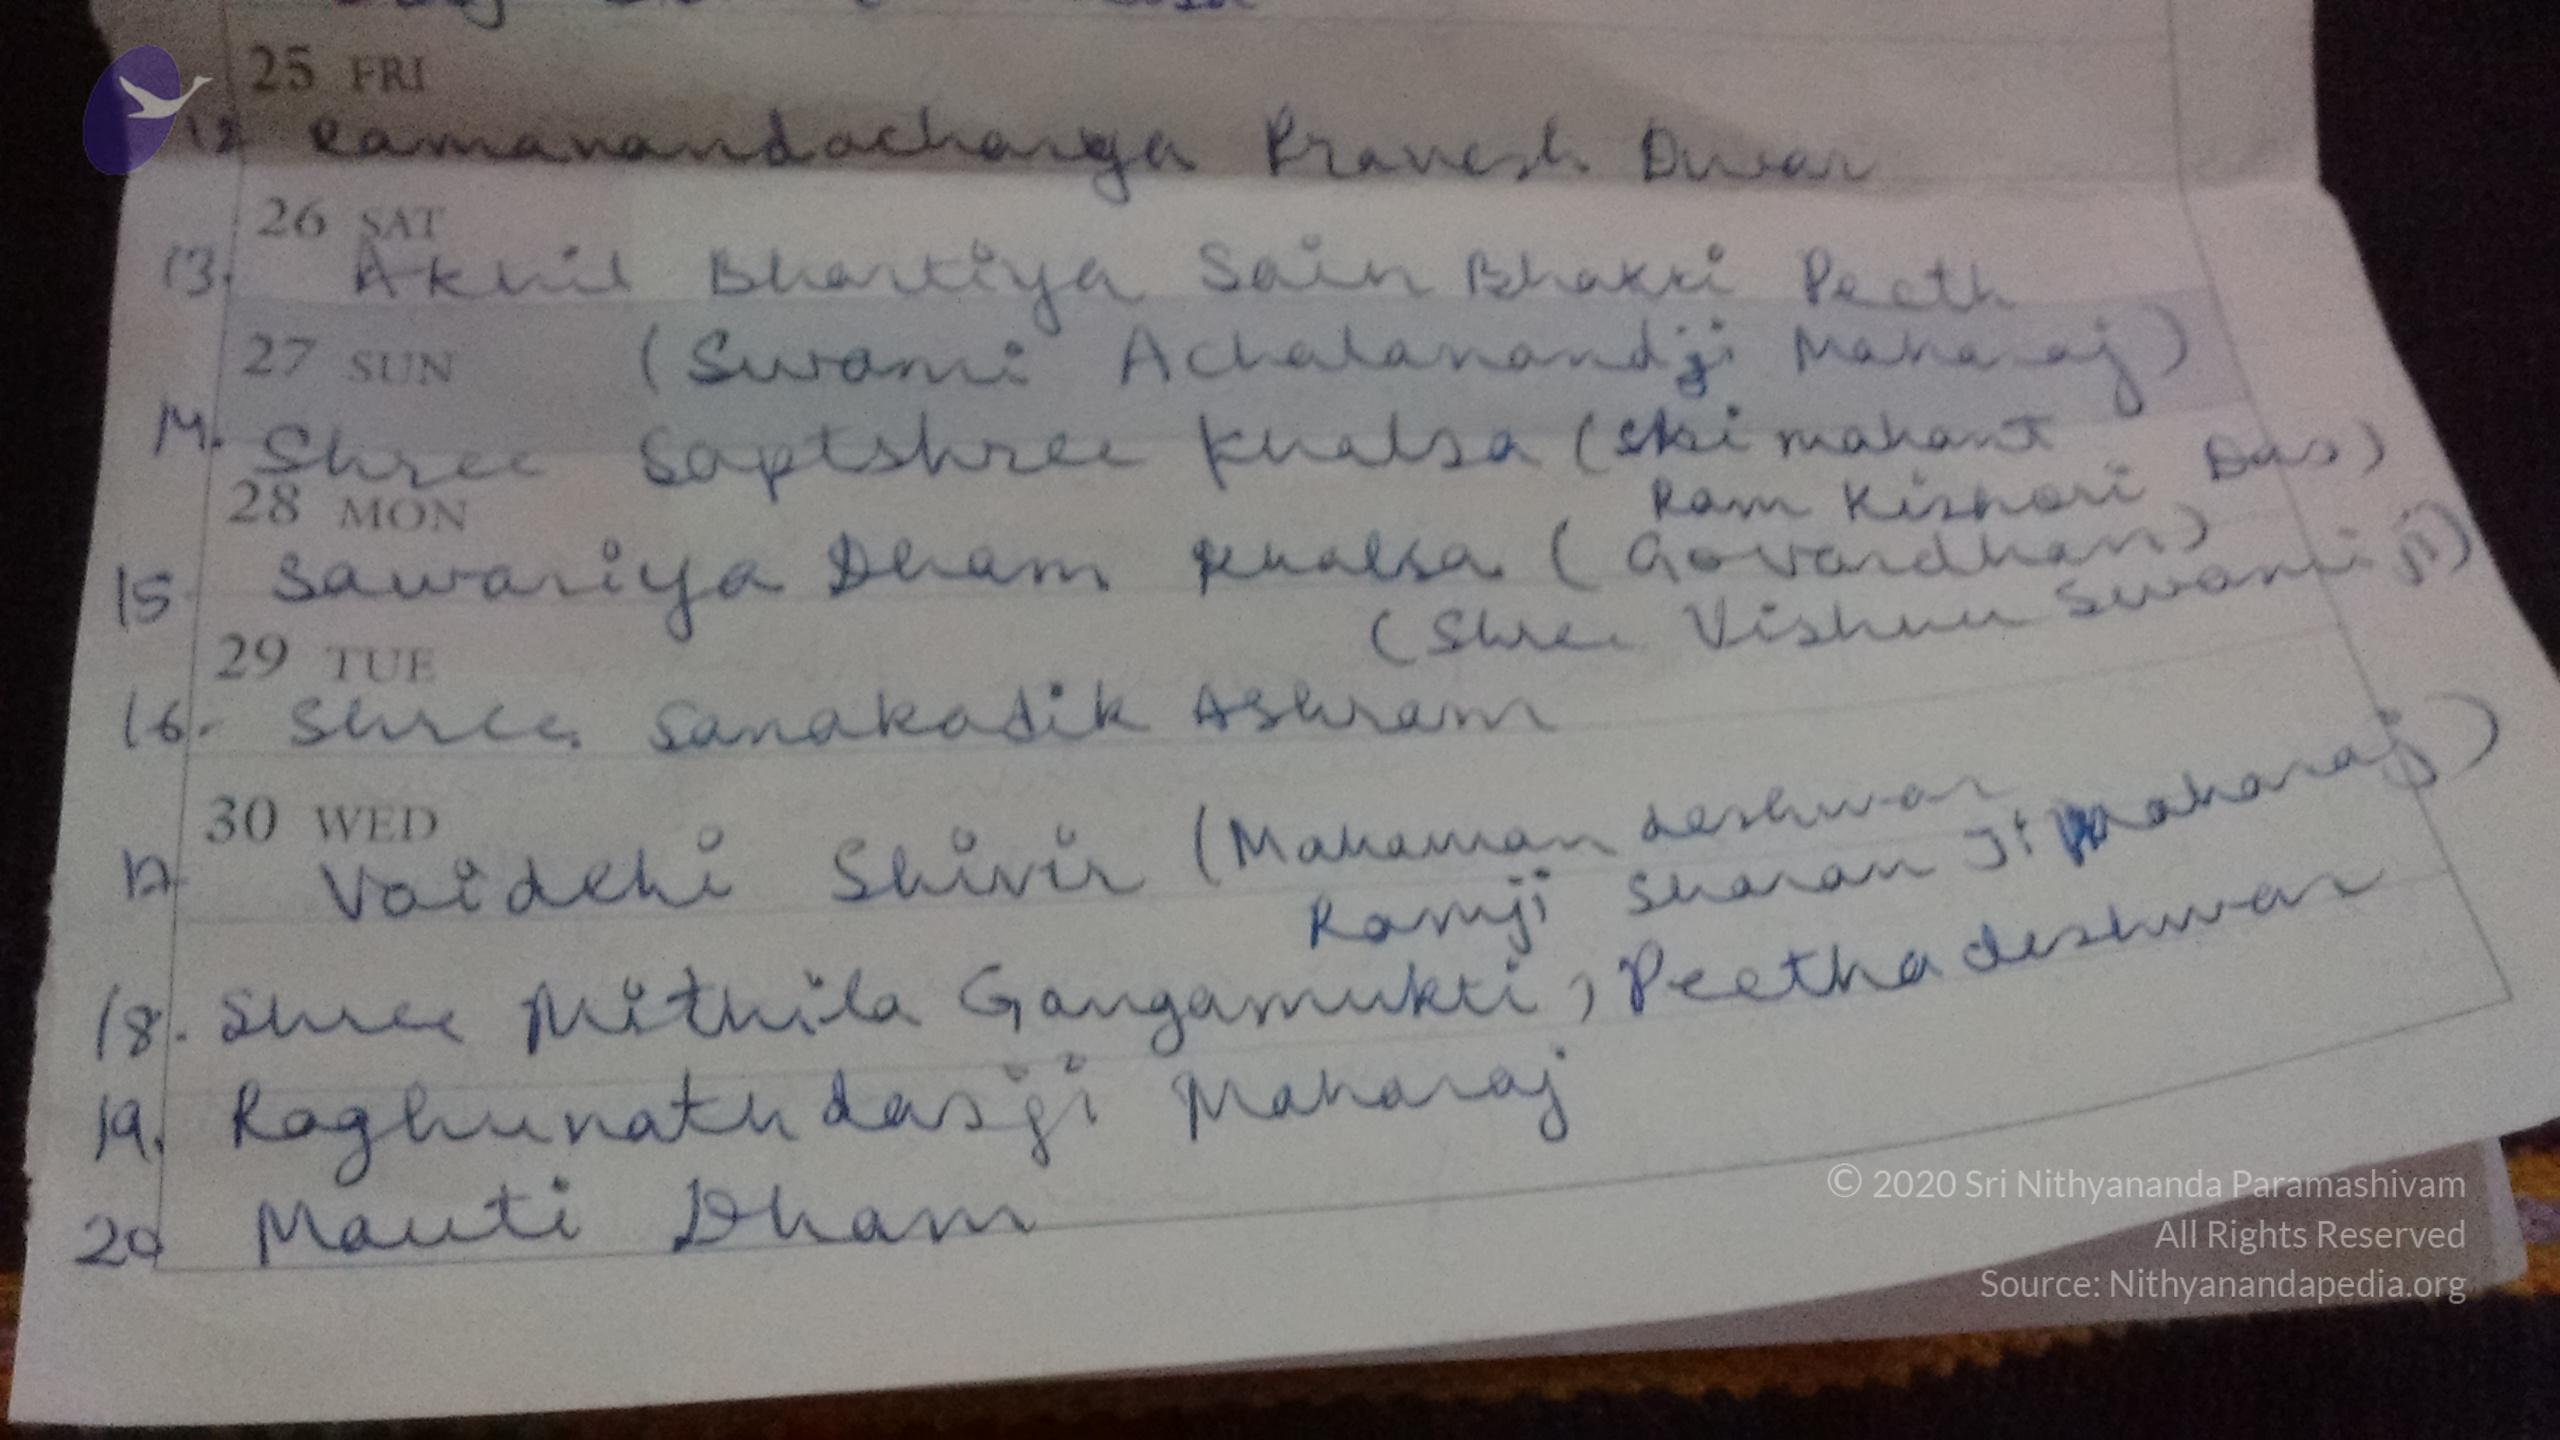 25 FRI
12 Ramanandacharya Pravesh Dwar
26 SAT
13. Akhil Bhartiya Sain Bhakti Peeth
27 SUN (Swami Achalanandji Maharaj)
14. Shree Saptshree Khalsa (Sri mahant
Ram Kishori Das)
28 MON
15 Sawariya Dham Khalsa (Govardhan)
(Shree Vishnu Swamiji)
29 TUE
16. Shree Sanakadik Ashram
30 WED
17 Vaidehi Shivir (Mahaman deshwar
Ramji Sharan Ji Maharaj)
18. Shree Mithila Gangamukti, Peethadeshwar
19. Raghunathdasji Maharaj
20 Mauti Dham
© 2020 Sri Nithyananda Paramashivam
All Rights Reserved
Source: Nithyanandapedia.org